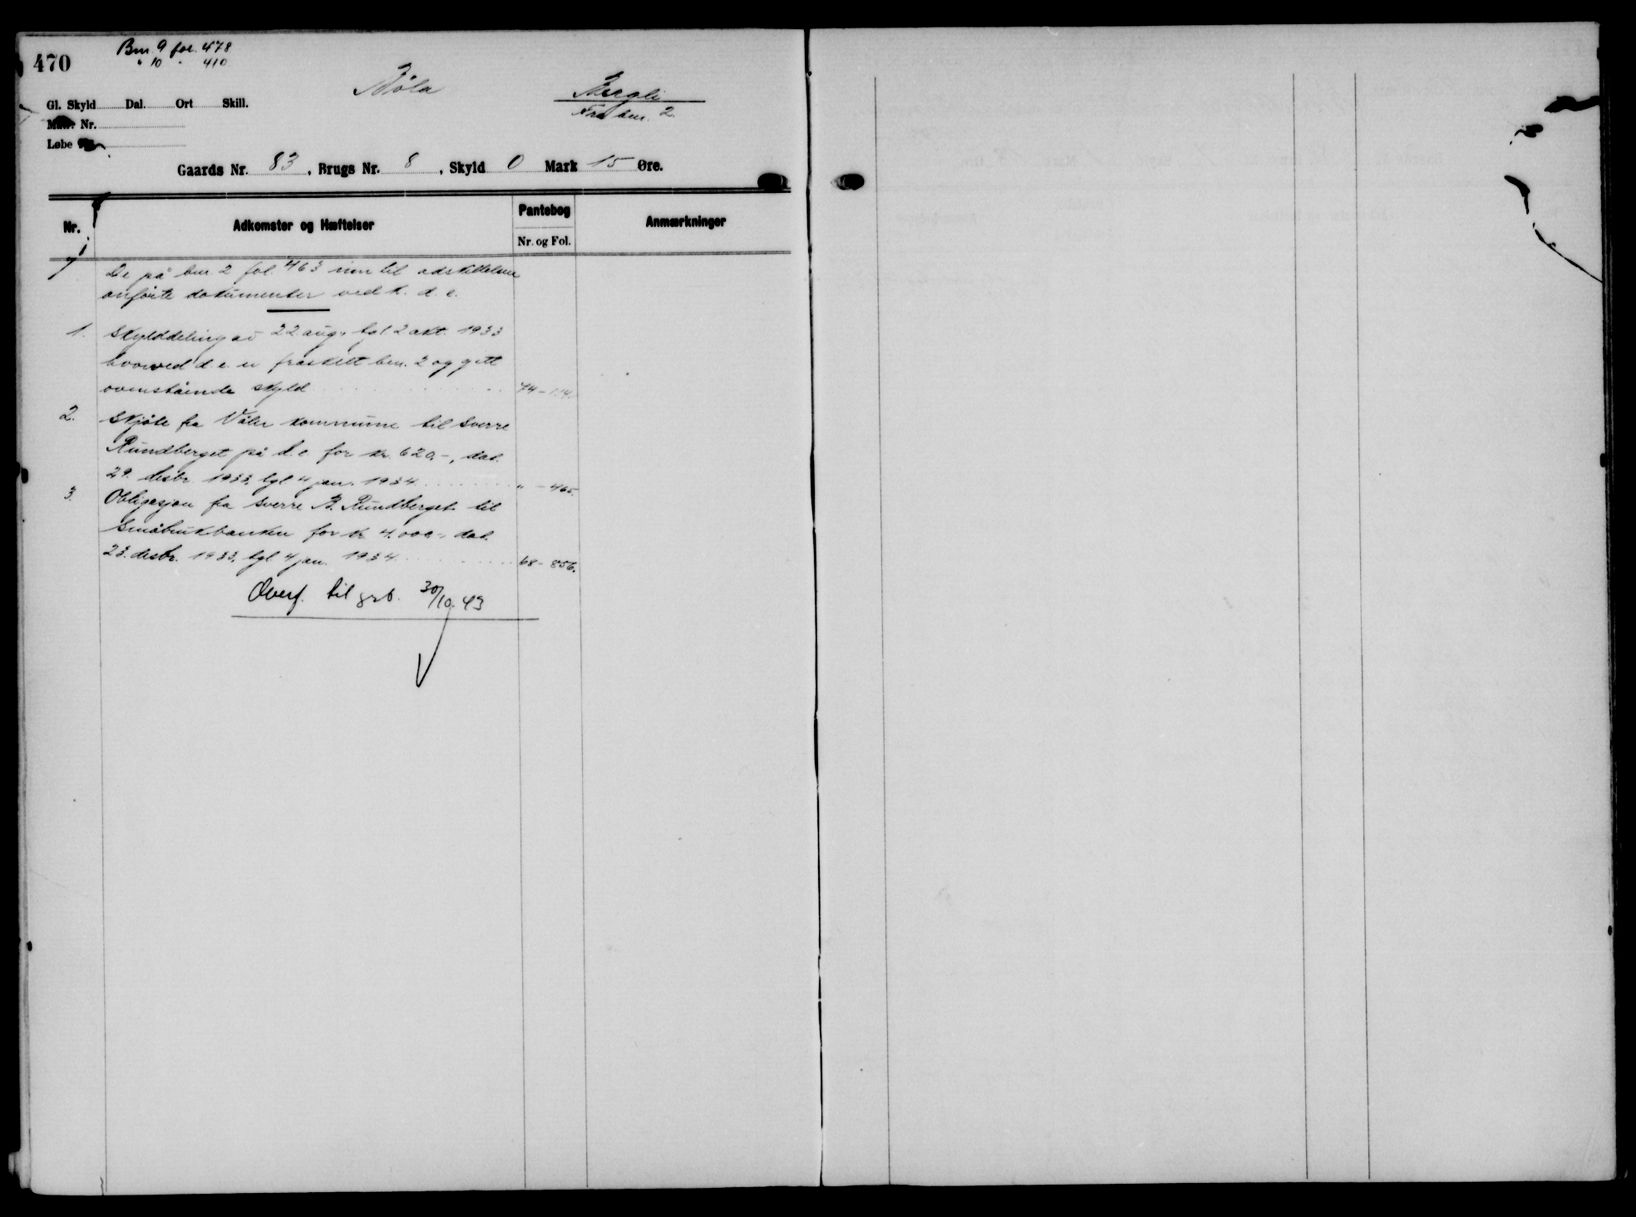 470
Bm. 9 fol. 478
" 10 " 410
Bergli
Fra bnr. 2.
Gl. Skyld Dal. Ort Skill.
Matr. Nr.
Løbe Nr.
Gaards Nr. 83, Brugs Nr. 8, Skyld 0 Mark 15 Øre.
Nr. Adkomster og Hæftelser Pantebog Anmærkninger
Nr. og Fol.
De på bnr 2 fol 463 inn til adskillelsen
anførte dokumenter vedk. d. e.
1. Skylddeling av 22 aug. tgl 2 okt. 1933
hvorved d e er fraskilt bnr. 2 og gitt
ovenstående skyld 74 -
2. Skjøte fra Våler kommune til Sverre
Rundberget på d e for kr. 620.-, dat.
29. desbr. 1933, tgl 4 jan. 1934 " - 465.
3. Obligasjon fra Sverre Rundberget til
Småbrukbanken for kr 4.000.- dat.
23. desbr. 1933, tgl 4 jan. 1934 68 - 856.
Overf. til grb. 30/10.43